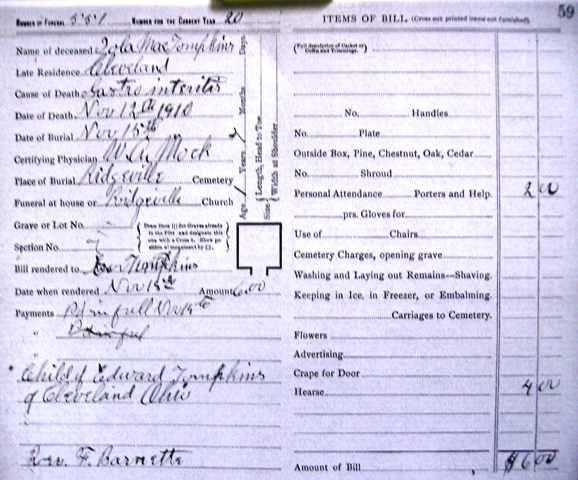 59
Number of Funeral 551 Number for the Current Year 20
Name of deceased Zola Mae Tompkins
Late Residence Cleveland
Cause of Death Gastro interitis
Date of Death Nov 12th 1910
Date of Burial Nov 15th
Certifying Physician W. A. Mock
Place of Burial Ridgeville Cemetery
Funeral at house or Ridgeville Church
Grave or Lot No.
Section No.
Bill rendered to Tompkins
Date when rendered Nov 15th Amount 6.00
Payments Pd in full Nov 15th
" Pd in full
Child of Edward Tompkins
of Cleveland Ohio
Rev. F. Barnette
Age Years, Months Days.
Size Length, Head to Toe.
Width at Shoulder
ITEMS OF BILL. (Cross out printed items not furnished).
(Full description of Casket or Coffin and Trimmings.
No. Handles
No. Plate
Outside Box, Pine, Chestnut, Oak, Cedar
No. Shroud
Personal Attendance Porters and Help. 2 00
prs. Gloves for
Use of Chairs
Cemetery Charges, opening grave
Washing and Laying out Remains—Shaving.
Keeping in Ice, in Freezer, or Embalming.
Carriages to Cemetery.
Flowers
Advertising
Crape for Door
Hearse 4 00
Amount of Bill $6 00